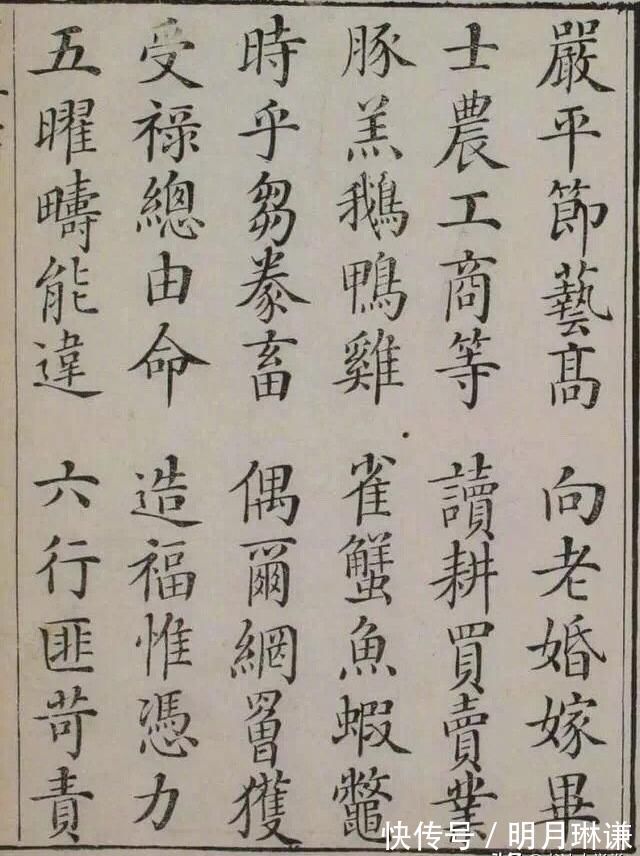 嚴平節藝高 向老婚嫁畢
士農工商等 讀耕買賣業
豚羔鵝鴨雞 雀蟹魚蝦鼈
時乎芻豢畜 偶爾網罾獲
受祿總由命 造福惟憑力
五曜疇能違 六行匪苛責
快传号 / 明月琳谦